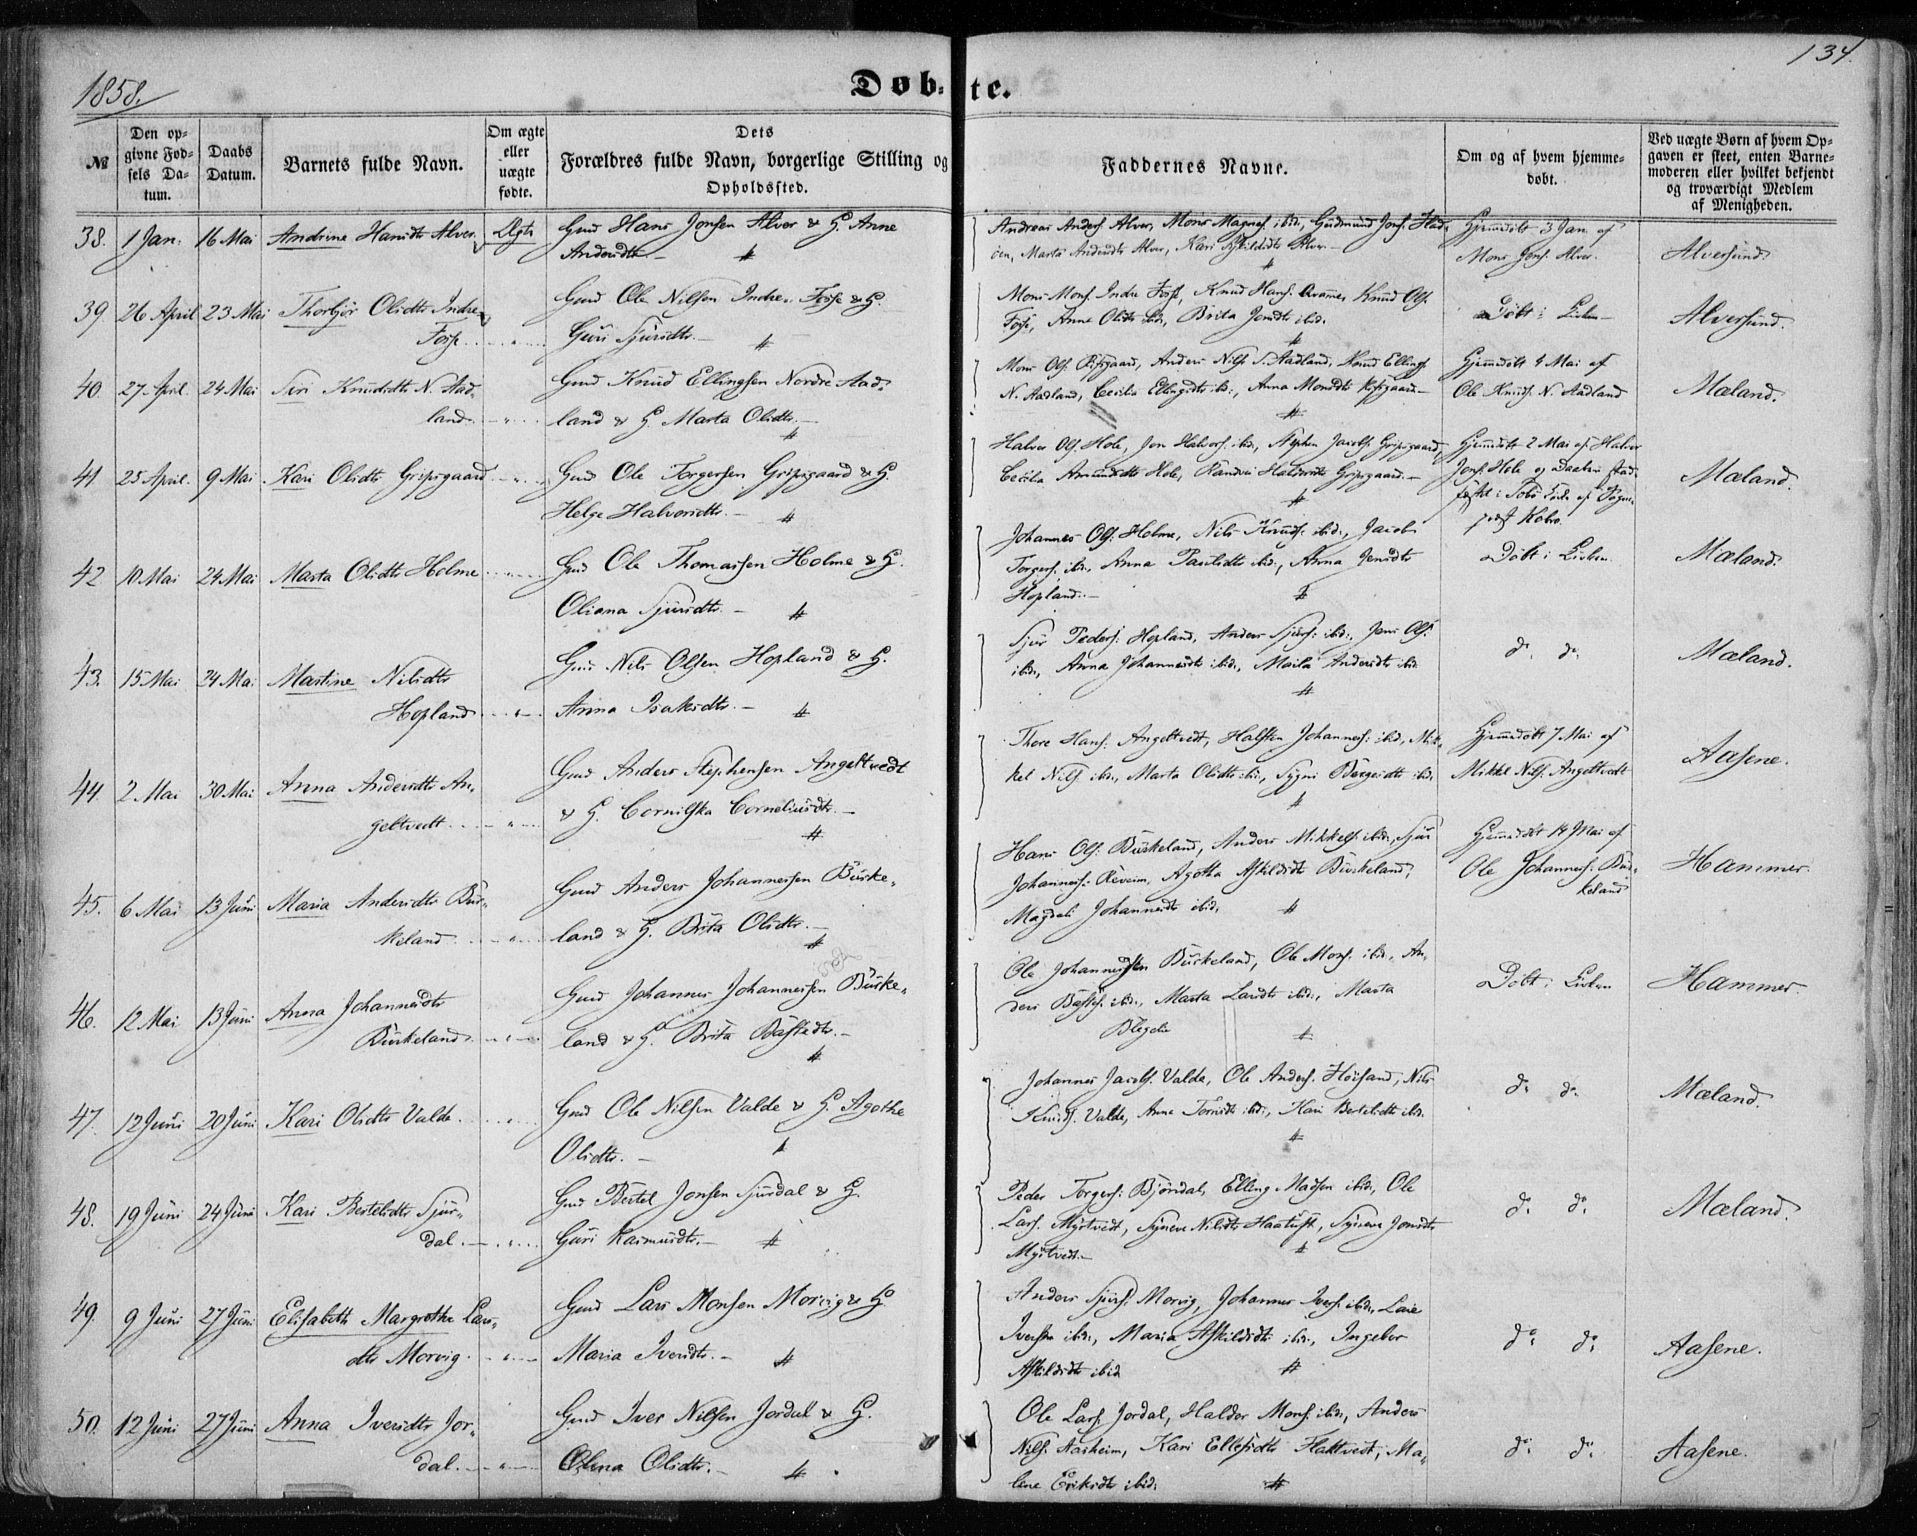 1858.
Døb-te.
134.
№
Den opgivne Fødsels Datum.
Daabs Datum.
Barnets fulde Navn.
Om ægte eller uægte fødte.
Dets Forældres fulde Navn, borgerlige Stilling og Opholdssted.
Faddernes Navne.
Om og af hvem hjemmedøbt.
Ved uægte Børn af hvem Opgaven er skeet, enten Barnemoderen eller hvilket bekjendt og troværdigt Medlem af Menigheden.
38. 1 Jan: 16 Mai Andrine Hansdtr Alver. Ægte Gmd Hans Jonsen Alver & H. Anne
Andersdtr.
Andreas Anders. Alver, Mons Magnes. ibid., Gudmund Jons. Flad-
öen, Marta Andersdtr Alver, Kari Askildsdtr Alver.
Hjemmedöbt 3 Jan. af
Mons Jons. Alver.
Alversund.
39. 26 April 23 Mai Thorbjör Olsdtr Indre-
Fosse
Gmd Ole Nilsen Indre-Fosse & H.
Guri Sjursdtr.
Mons Mons. Indre Fosse, Knud Hans. Knud Ols.
Fosse, Anne Olsdtr ibid., Brita Jonsdtr ibid.
Döbt i Kirken
Alversund.
40. 27 April 24 Mai Siri Knudsdtr N. Aad-
land
Gmd Knud Ellingsen Nordre Aad-
land & H. Marta Olsdtr.
Mons Ols. Risgaard, Anders Nils. S. Aadland, Knud Ellings.
N. Aadland, Cecilia Ellingsdtr ib., Anna Monsdtr Risgaard
Hjemmedöbt 4 Mai af
Ole Knuds. N. Aadland
Mæland.
41 25 April. 9 Mai Kari Olsdtr Gripsgaard
Gmd Ole Torgersen Gripsgaard & H.
Helge Halvorsdtr.
Halvor Ols. Hole, Jon Halvors. ibid., Stephen Jacobs. Gripsgaard,
Cecilia Amundsdtr Hole, Randvei Halvorsdtr Gripsgaard.
Hjemmedöbt 2 Mai af Halvor
Jons. Hole og Daaben stad-
fæstet i af Sogne-
præst
Mæland.
42 10 Mai 24 Mai Marta Olsdtr Holme
Gmd Ole Thomassen Holme & H.
Oliana Sjursdtr.
Johannes Ols. Holme, Nils Knuds. ibid., Jacob
Torgers. ibid., Anna Paulsdtr ibid., Anna Jensdtr
Hopland.
Döbt i Kirken
Mæland.
43. 15 Mai 24 Mai Martine Nilsdtr
Hopland
Gmd Nils Olsen Hopland & H.
Anna Isaksdtr.
Sjur Peders. Hopland, Anders Sjurs. ibid., Jens Ols.
ibid., Anna Johannesdtr ibid., Maila Andersdtr ibid.
do. do.
Mæland.
44. 2 Mai 30 Mai Anna Andersdtr An-
geltvedt
Gmd Anders Stephensen Angeltvedt
& H. Cornilska Corneliusdtr.
Thore Hans. Angeltvedt, Halsten Johannes. ibid., Mik-
kel Nils. ibid., Marta Olsdtr ibid., Sygni Börgesdtr ibid.
Hjemmedöbt 7 Mai af
Mikkel Nils. Angeltvedt
Aasene.
45. 6 Mai 13 Juni Maria Andersdtr Bur-
keland
Gmd Anders Johannessen Burke-
land & H. Brita Olsdtr.
Hans Ols. Burkeland, Anders Mikkels. ibid., Sjur
Johannes. Röveim, Agotha Askildsdtr Burkeland,
Magdeli Johannesdtr ibid.
Hjemmedöbt 14 Mai af
Ole Johannes. Bur-
keland
Hammer.
46. 12 Mai 13 Juni Anna Johannesdtr
Burkeland
Gmd Johannes Johannessen Burke-
land & H. Brita Bastesdtr.
Ole Johannessen Burkeland, Ole Mons. ibid., An-
ders Bastes. ibid., Marta Larsdtr ibid., Marta
Döbt i Kirken
Hammer
47. 12 Juni 20 Juni Kari Olsdtr Valde
Gmd Ole Nilsen Valde & H. Agothe
Olsdtr.
Johannes Jacobs. Valde, Ole Anders. Höisand, Nils
Knuds. Valde, Anne ibid., Kari Bertelsdtr ibid.
do. do.
Mæland.
48. 19 Juni 24 Juni Kari Bertelsdtr Sjur-
dal
Gmd Bertel Jonsen Sjurdal & H.
Guri Rasmusdtr.
Peder Torgers. Björndal, Elling Madsen ibid., Ole
Lars. Myltvedt, Syneve Nilsdtr Syneve Jonsdtr
Myltvedt.
do. do.
Mæland.
49. 9 Juni 27 Juni Elisabeth Margrethe Lars-
dtr Morvig
Gmd Lars Monsen Morvig & H.
Maria Iversdtr.
Anders Sjurs. Morvig, Johannes Ivers. ibid., Lars
Iversen ibid., Maria Askildsdtr ibid., Ingebor
Askildsdtr ibid
do. do.
Aasene.
50. 12 Juni 27 Juni Anna Iversdtr Jor-
dal
Gmd Iver Nilsen Jordal & H.
Olina Olsdtr.
Ole Lars. Jordal, Haldor Mons. ibid., Anders
Nils. Aasheim, Kari Ellefsdtr Flattvedt, Ma-
lene Eriksdtr ibid.
do. do.
Aasene.